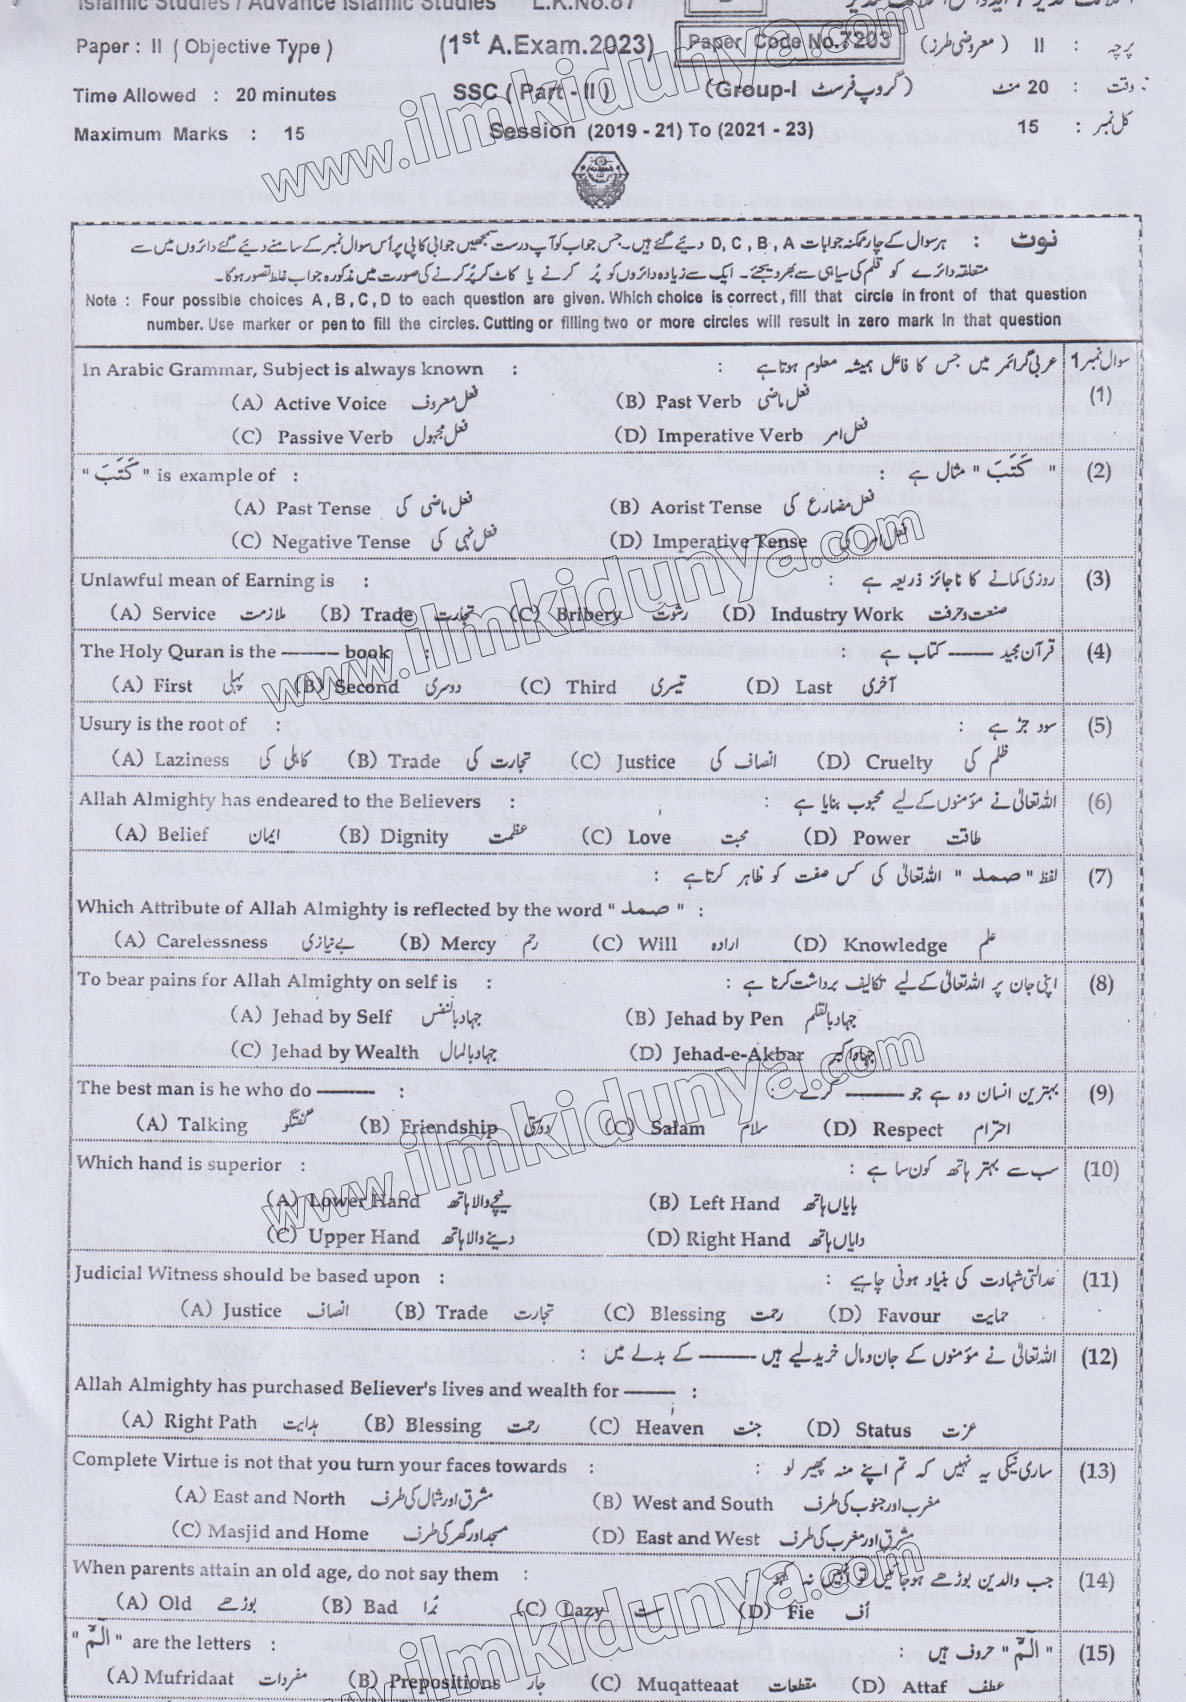 Islamic Studies / Advance Islamic Studies L.K.No.87
Paper : II ( Objective Type ) (1st A.Exam.2023) Paper Code No.7203 پرچہ : II ( معروضی طرز )
Time Allowed : 20 minutes SSC ( Part - II ) (Group-I گروپ فرسٹ ) وقت : 20 منٹ
Maximum Marks : 15 Session (2019 - 21) To (2021 - 23) کل نمبر : 15
نوٹ : ہر سوال کے چار ممکنہ جوابات D, C, B, A دیئے گئے ہیں۔ جس جواب کو آپ درست سمجھیں جوابی کاپی پر اُس سوال نمبر کے سامنے دیئے گئے دائروں میں سے
متعلقہ دائرے کو قلم کی سیاہی سے بھر دیجئے۔ ایک سے زیادہ دائروں کو پُر کرنے یا کاٹ کر پُر کرنے کی صورت میں مذکورہ جواب غلط تصور ہوگا۔
Note : Four possible choices A , B , C , D to each question are given. Which choice is correct , fill that circle in front of that question
number. Use marker or pen to fill the circles. Cutting or filling two or more circles will result in zero mark in that question
سوال نمبر 1 عربی گرائمر میں جس کا فاعل ہمیشہ معلوم ہوتا ہے :
In Arabic Grammar, Subject is always known :
(1)
(A) Active Voice فعل معروف (B) Past Verb فعل ماضی
(C) Passive Verb فعل مجہول (D) Imperative Verb فعل امر
(2) " كَتَبَ " مثال ہے :
" كَتَبَ " is example of :
(A) Past Tense فعل ماضی کی (B) Aorist Tense فعل مضارع کی
(C) Negative Tense فعل نہی کی (D) Imperative Tense فعل امر کی
(3) روزی کمانے کا ناجائز ذریعہ ہے :
Unlawful mean of Earning is :
(A) Service ملازمت (B) Trade تجارت (C) Bribery رشوت (D) Industry Work صنعت و حرفت
(4) قرآن مجید ------ کتاب ہے
The Holy Quran is the ------ book :
(A) First پہلی (B) Second دوسری (C) Third تیسری (D) Last آخری
(5) سود جڑ ہے :
Usury is the root of :
(A) Laziness کاہلی کی (B) Trade تجارت کی (C) Justice انصاف کی (D) Cruelty ظلم کی
(6) اللہ تعالیٰ نے مؤمنوں کے لیے محبوب بنایا ہے :
Allah Almighty has endeared to the Believers :
(A) Belief ایمان (B) Dignity عظمت (C) Love محبت (D) Power طاقت
(7) لفظ " صمد " اللہ تعالیٰ کی کس صفت کو ظاہر کرتا ہے :
Which Attribute of Allah Almighty is reflected by the word " صمد " :
(A) Carelessness بے نیازی (B) Mercy رحم (C) Will ارادہ (D) Knowledge علم
(8) اپنی جان پر اللہ تعالیٰ کے لیے تکالیف برداشت کرنا ہے :
To bear pains for Allah Almighty on self is :
(A) Jehad by Self جہاد بالنفس (B) Jehad by Pen جہاد بالقلم
(C) Jehad by Wealth جہاد بالمال (D) Jehad-e-Akbar جہاد اکبر
(9) بہترین انسان وہ ہے جو ------ کرے
The best man is he who do ------ :
(A) Talking گفتگو (B) Friendship دوستی (C) Salam سلام (D) Respect احترام
(10) سب سے بہتر ہاتھ کون سا ہے :
Which hand is superior :
(A) Lower Hand نیچے والا ہاتھ (B) Left Hand بایاں ہاتھ
(C) Upper Hand دینے والا ہاتھ (D) Right Hand دایاں ہاتھ
(11) عدالتی شہادت کی بنیاد ہونی چاہیے :
Judicial Witness should be based upon :
(A) Justice انصاف (B) Trade تجارت (C) Blessing رحمت (D) Favour حمایت
(12) اللہ تعالیٰ نے مؤمنوں کے جان و مال خرید لیے ہیں ------ کے بدلے میں :
Allah Almighty has purchased Believer's lives and wealth for ------ :
(A) Right Path ہدایت (B) Blessing رحمت (C) Heaven جنت (D) Status عزت
(13) ساری نیکی یہ نہیں کہ تم اپنے منہ پھیر لو :
Complete Virtue is not that you turn your faces towards :
(A) East and North مشرق اور شمال کی طرف (B) West and South مغرب اور جنوب کی طرف
(C) Masjid and Home مسجد اور گھر کی طرف (D) East and West مشرق اور مغرب کی طرف
(14) جب والدین بوڑھے ہو جائیں تو انہیں نہ کہو
When parents attain an old age, do not say them :
(A) Old بوڑھے (B) Bad بُرا (C) Lazy سست (D) Fie اُف
(15) " الٓمّٓ " حروف ہیں :
" الٓمّٓ " are the letters :
(A) Mufridaat مفردات (B) Prepositions جار (C) Muqatteaat مقطعات (D) Attaf عطف
www.ilmkidunya.com
www.ilmkidunya.com
www.ilmkidunya.com
www.ilmkidunya.com